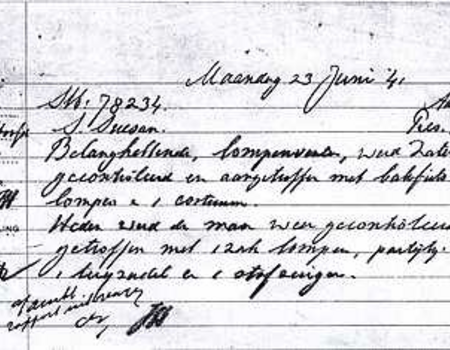 Maandag 23 Juni '41
Stb: 78234.
S. Sucsan. Pres.
Belanghebbende, lompenventer, werd Zater
gecontroleerd en aangetroffen met bakfiets
lompen e 1 costuum.
Heden werd de man weer gecontroleerd
getroffen met 1 zak lompen, partijtje
1 en 1 stofzuiger.
rapport